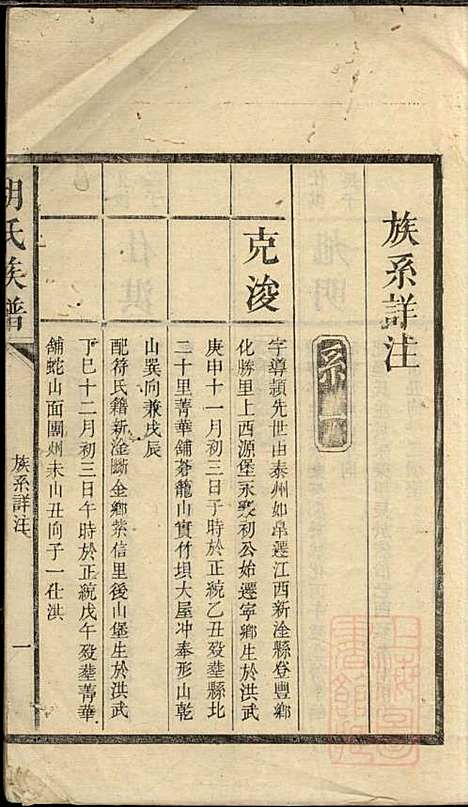 族系詳注
系
克浚
字導穎先世由泰州如皋遷江西新淦縣登豐鄉
化勝里上西源堡永𣪚初公始遷寧鄉生於洪武
庚申十一月初三日子時於正統乙丑歿塟縣北
二十里菁華舖蒼龍山實竹垻大屋冲奉形山乾
山巽向兼戌辰
配符氏籍新淦斷金鄉紫信里後山堡生於洪武
丁巳十二月初三日午時於正統戊午歿塟菁華
舖蛇山面團州未山丑向子一仕洪
胡氏族譜
族系詳注
一